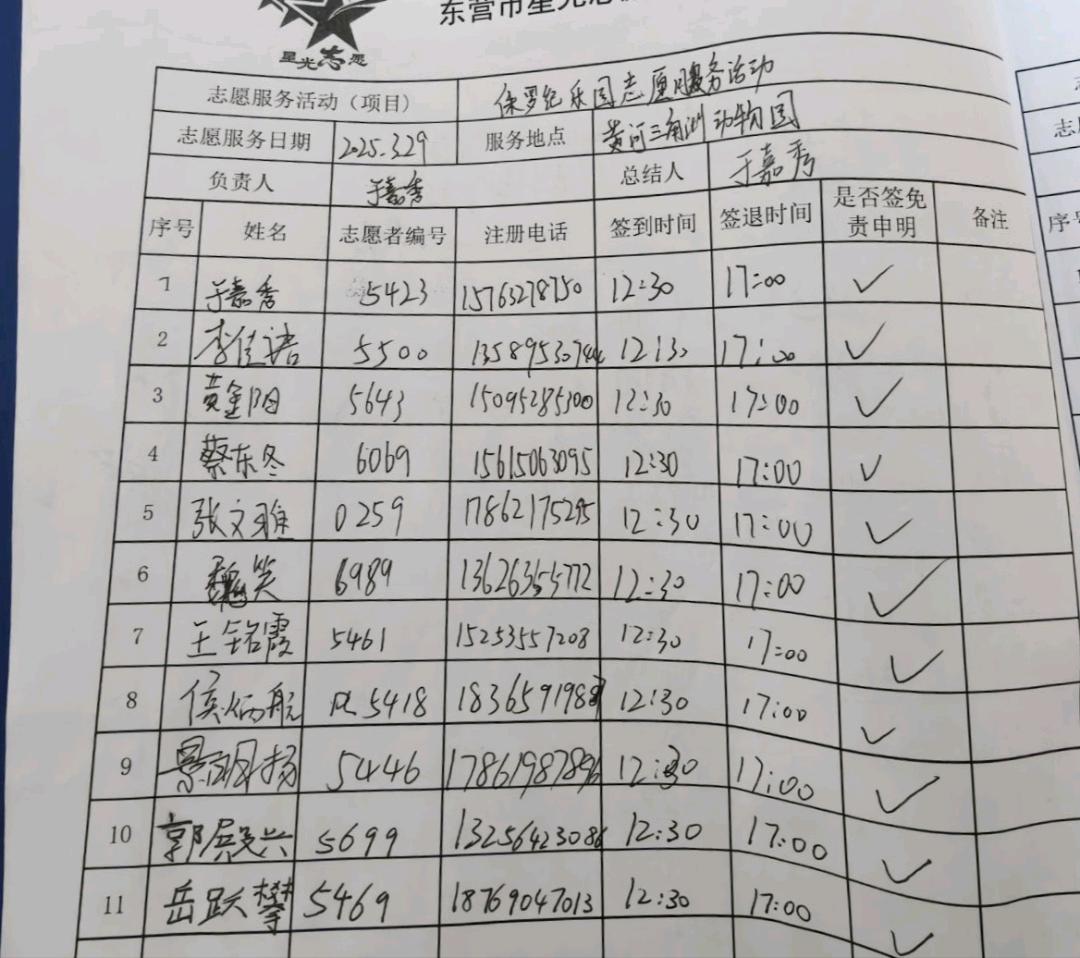 东营市星光志
星光志愿
志愿服务活动（项目） 侏罗纪乐园志愿服务活动
志愿服务日期 2025.3.29 服务地点 黄河三角洲动物园
负责人 于嘉秀 总结人 于嘉秀
序号 姓名 志愿者编号 注册电话 签到时间 签退时间 是否签免责申明 备注
1 于嘉秀 5423 15763278750 12:30 17:00 ✓
2 李佳诺 5500 12:30 17:00 ✓
3 黄金阳 5643 15095285300 12:30 17:00 ✓
4 蔡东冬 6069 15615063095 12:30 17:00 ✓
5 张文雅 0259 17862175295 12:30 17:00 ✓
6 魏笑 6989 13626355772 12:30 17:00 ✓
7 王铭霞 5461 15253557208 12:30 17:00 ✓
8 侯炳航 5418 12:30 17:00 ✓
9 5446 17861987896 12:30 17:00 ✓
10 郭殿兴 5699 13256423086 12:30 17:00 ✓
11 岳跃攀 5469 18769047013 12:30 17:00 ✓
志
序号